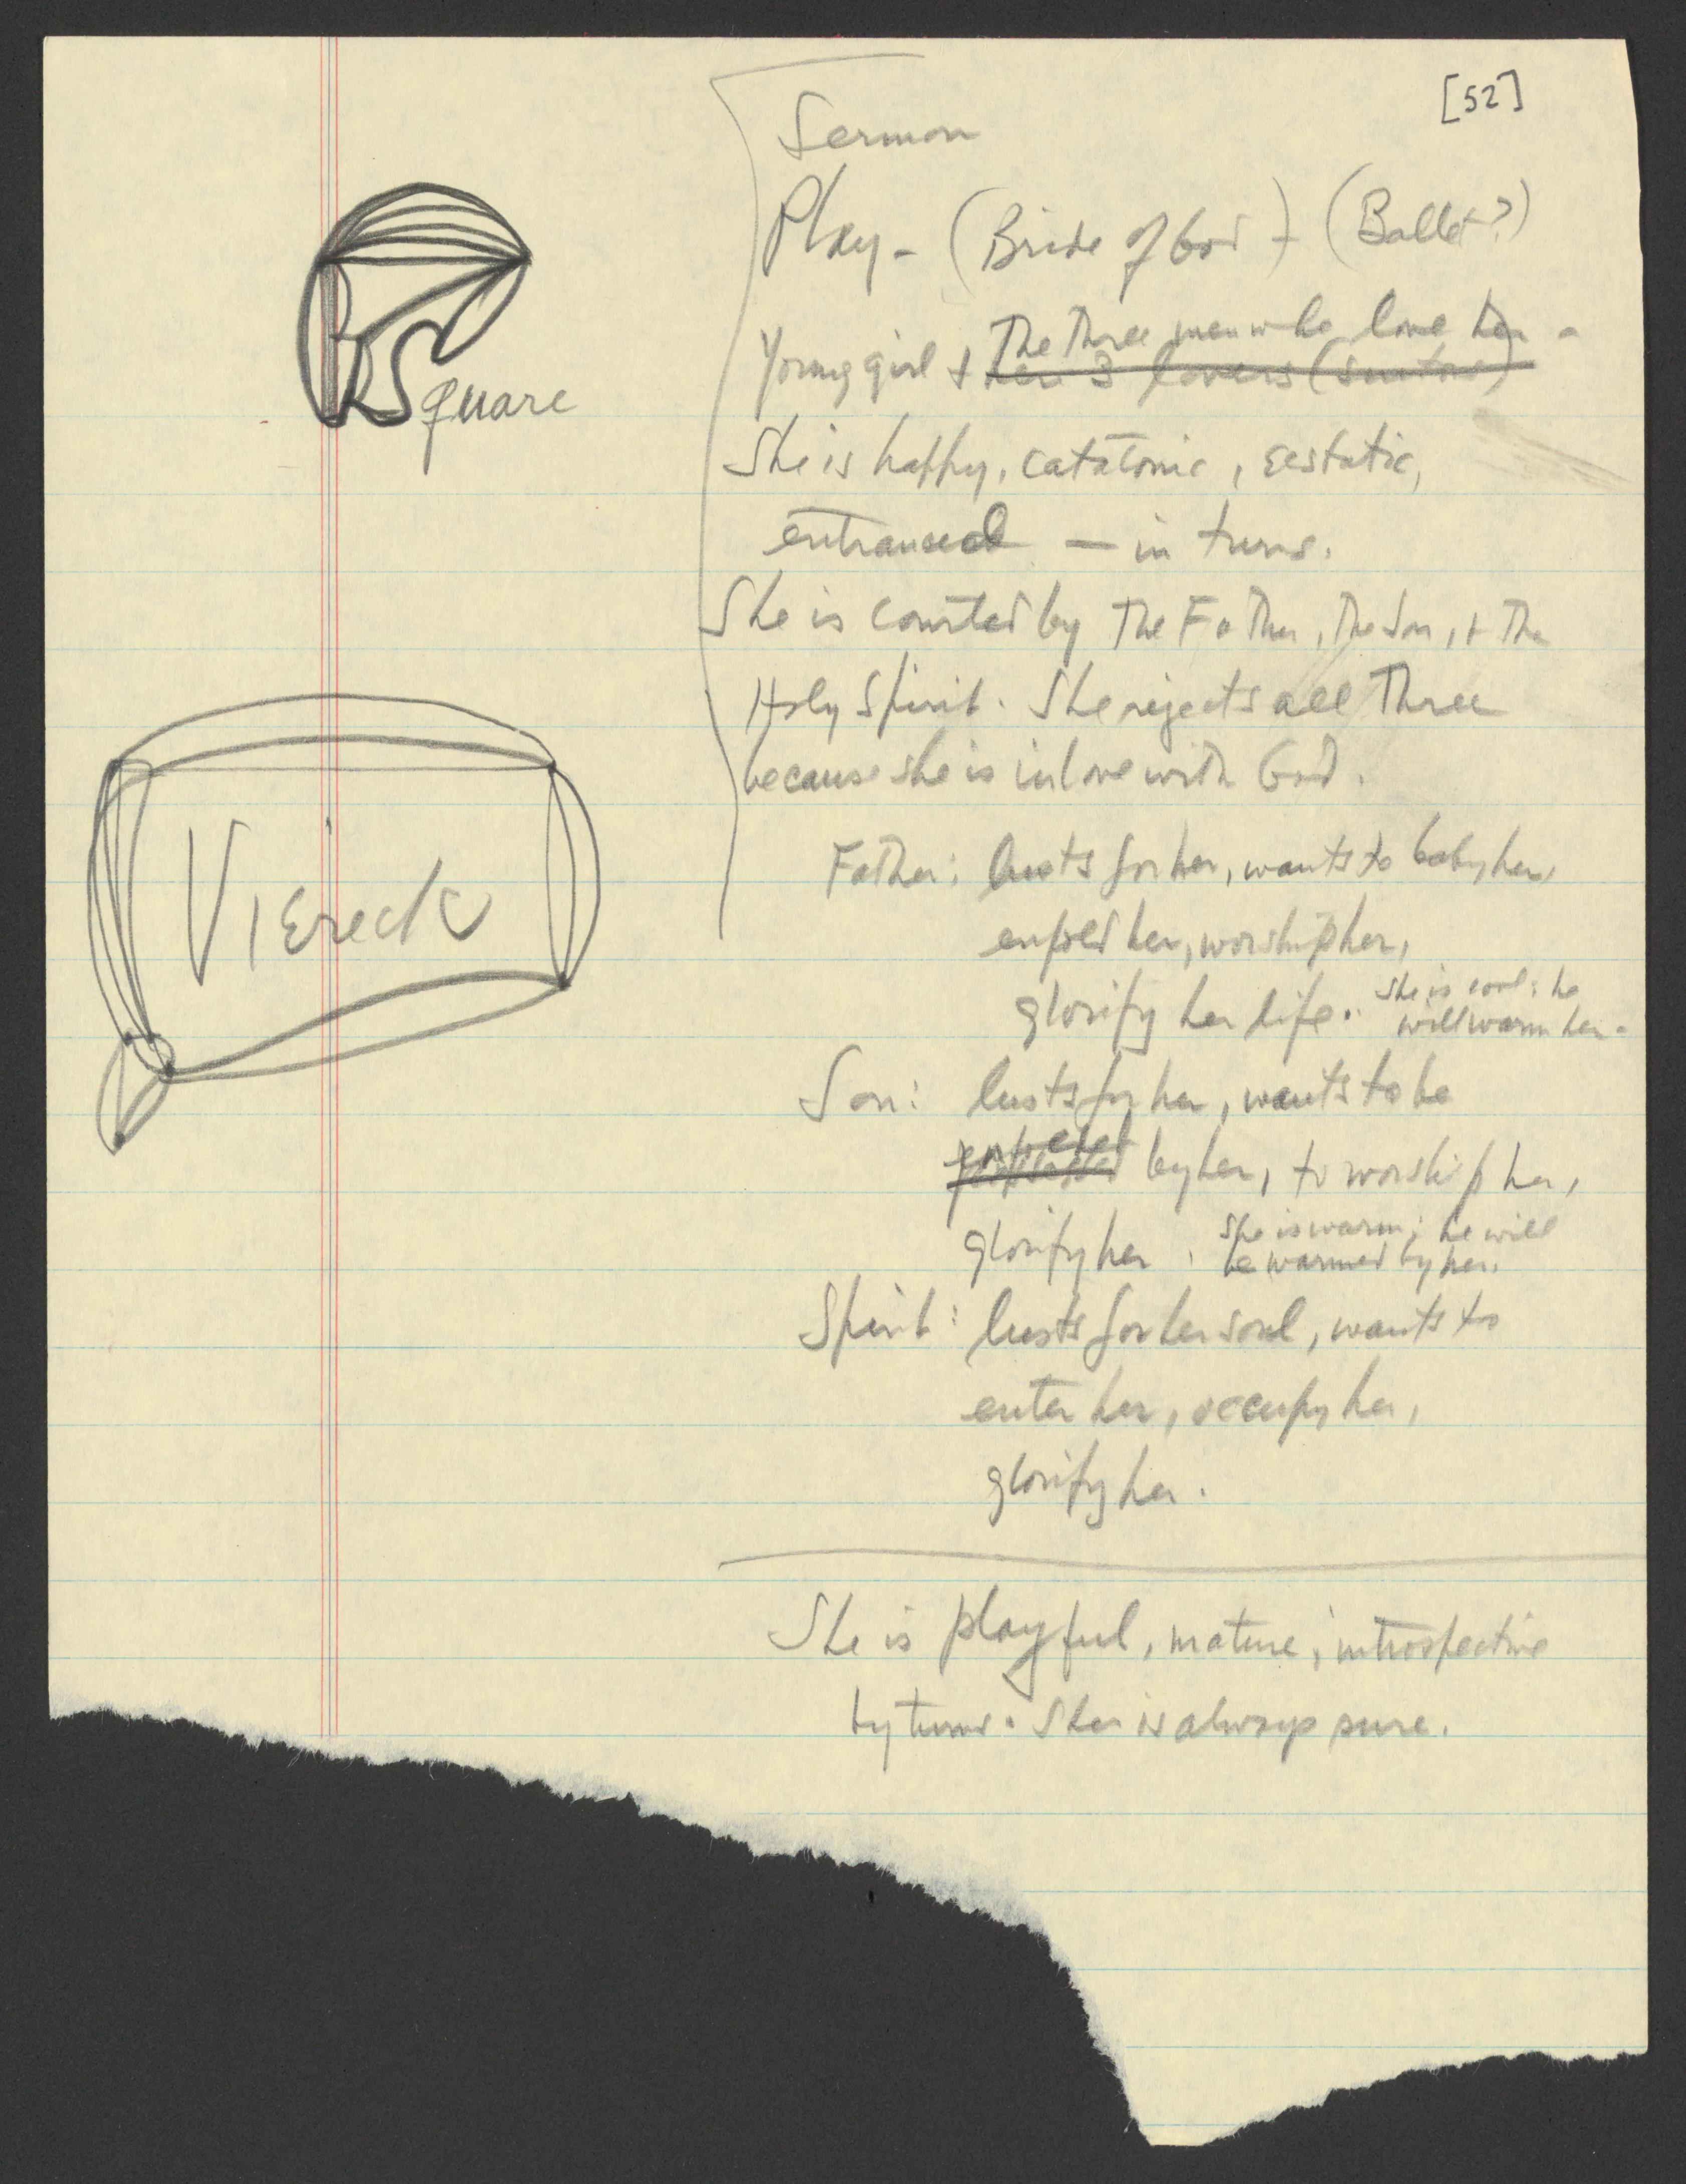 [52]
Sermon
Play - (Bride of God) - (Ballet?)
The three men who love her -
Young girl + her 3 lovers (suitors)
She is happy, catatonic, ecstatic,
entranced — in turns.
She is courted by The Father, The Son, + The
Holy Spirit. She rejects all Three
because she is in love with God.
Father: lusts for her, wants to baby her,
enfold her, worship her,
glorify her life. She is cool: he
will warm her.
Son: lusts for her, wants to be
by her, to worship her,
glorify her. She is warm; he will
be warmed by her.
Spirit: lusts for her soul, wants to
enter her, occupy her,
glorify her.
She is playful, mature, introspective
by turns. She is always pure.
Square
Viereck